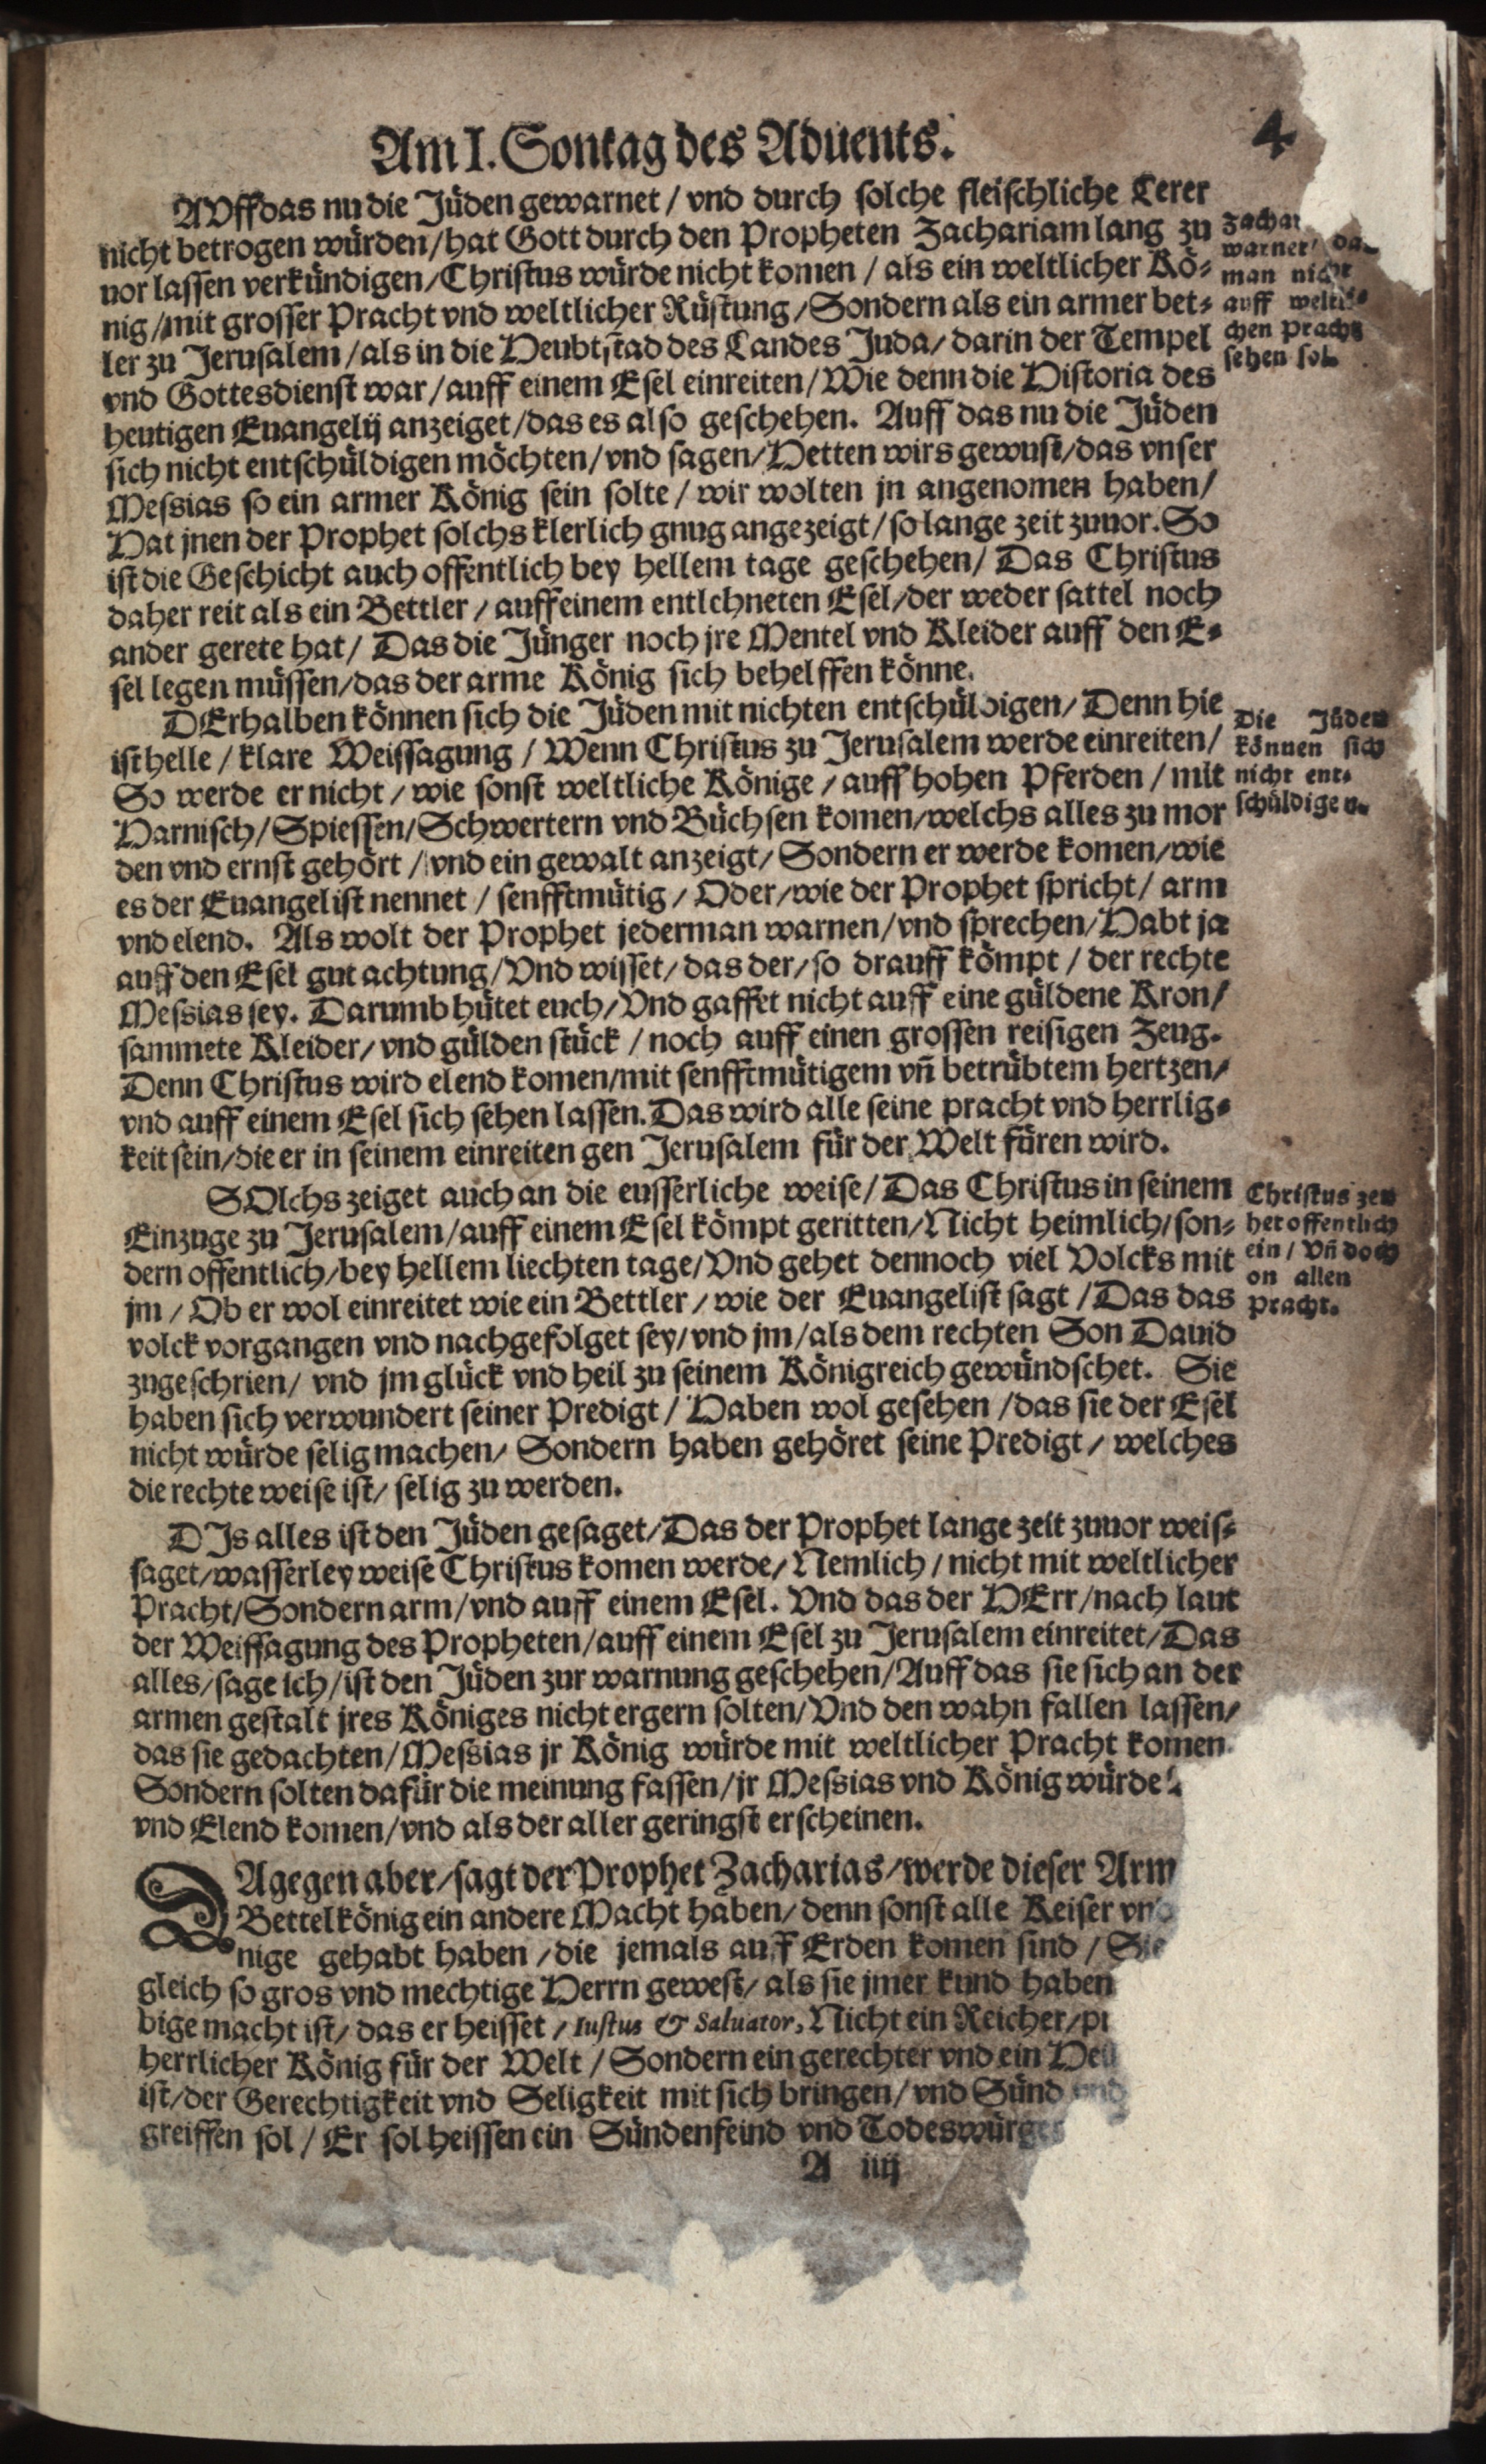 Am I. Sontag des Aduents.
4
AVff das nu die Jüden gewarnet / vnd durch solche fleischliche Lerer
nicht betrogen würden / hat Gott durch den Propheten Zachariam lang zu
uor lassen verkündigen / Christus würde nicht komen / als ein weltlicher Kö-
nig / mit grosser Pracht vnd weltlicher Rüstung / Sondern als ein armer bet-
ler zu Jerusalem / als in die Heubtstad des Landes Juda / darin der Tempel
vnd Gottesdienst war / auff einem Esel einreiten / Wie denn die Historia des
heutigen Euangelij anzeiget / das es also geschehen. Auff das nu die Jüden
sich nicht entschüldigen möchten / vnd sagen / Hetten wirs gewust / das vnser
Messias so ein armer König sein solte / wir wolten jn angenomen haben /
Hat jnen der Prophet solchs klerlich gnug angezeigt / so lange zeit zuuor. So
ist die Geschicht auch offentlich bey hellem tage geschehen / Das Christus
daher reit als ein Bettler / auff einem entlehneten Esel / der weder sattel noch
ander gerete hat / Das die Jünger noch jre Mentel vnd Kleider auff den E-
sel legen müssen / das der arme König sich behelffen könne.
warnet / da-
man nicht
auff weltli-
chen pracht
sehen sol.
DErhalben können sich die Jüden mit nichten entschüldigen / Denn hie
ist helle / klare Weissagung / Wenn Christus zu Jerusalem werde einreiten /
So werde er nicht / wie sonst weltliche Könige / auff hohen Pferden / mit
Harnisch / Spiessen / Schwertern vnd Büchsen komen / welchs alles zu mor
den vnd ernst gehört / vnd ein gewalt anzeigt / Sondern er werde komen / wie
es der Euangelist nennet / senfftmütig / Oder / wie der Prophet spricht / arm
vnd elend. Als wolt der Prophet jederman warnen / vnd sprechen / Habt ja
auff den Esel gut achtung / Vnd wisset / das der / so drauff kömpt / der rechte
Messias sey. Darumb hütet euch / Vnd gaffet nicht auff eine güldene Kron /
sammete Kleider / vnd gülden stück / noch auff einen grossen reisigen Zeug.
Denn Christus wird elend komen / mit senfftmütigem vn̄ betrübtem hertzen /
vnd auff einem Esel sich sehen lassen. Das wird alle seine pracht vnd herrlig-
keit sein / die er in seinem einreiten gen Jerusalem für der Welt füren wird.
Die Jüden
können sich
nicht ent-
schüldigen.
SOlchs zeiget auch an die eusserliche weise / Das Christus in seinem
Einzuge zu Jerusalem / auff einem Esel kömpt geritten / Nicht heimlich / son-
dern offentlich / bey hellem liechten tage / Vnd gehet dennoch viel Volcks mit
jm / Ob er wol einreitet wie ein Bettler / wie der Euangelist sagt / Das das
volck vorgangen vnd nachgefolget sey / vnd jm / als dem rechten Son Dauid
zugeschrien / vnd jm glück vnd heil zu seinem Königreich gewündschet. Sie
haben sich verwundert seiner Predigt / Haben wol gesehen / das sie der Esel
nicht würde selig machen / Sondern haben gehöret seine Predigt / welches
die rechte weise ist / selig zu werden.
Christus zeu
het offentlich
ein / Vn̄ doch
on allen
pracht.
DIs alles ist den Jüden gesaget / Das der Prophet lange zeit zuuor weis-
saget / wasserley weise Christus komen werde / Nemlich / nicht mit weltlicher
Pracht / Sondern arm / vnd auff einem Esel. Vnd das der HErr / nach laut
der Weissagung des Propheten / auff einem Esel zu Jerusalem einreitet / Das
alles / sage ich / ist den Jüden zur warnung geschehen / Auff das sie sich an der
armen gestalt jres Königes nicht ergern solten / Vnd den wahn fallen lassen /
das sie gedachten / Messias jr König würde mit weltlicher Pracht komen
Sondern solten dafür die meinung fassen / jr Messias vnd König würde
vnd Elend komen / vnd als der aller geringst erscheinen.
DAgegen aber / sagt der Prophet Zacharias / werde dieser Arm
Bettelkönig ein andere Macht haben / denn sonst alle Keiser vnd
nige gehabt haben / die jemals auff Erden komen sind / Sie
gleich so gros vnd mechtige Herrn gewest / als sie jmer kund haben
bige macht ist / das er heisset / Iustus & Saluator, Nicht ein Reicher /
herrlicher König für der Welt / Sondern ein gerechter vnd ein
ist / der Gerechtigkeit vnd Seligkeit mit sich bringen / vnd Sünd vnd
greiffen sol / Er sol heissen ein Sündenfeind vnd Todeswürger
A iiij